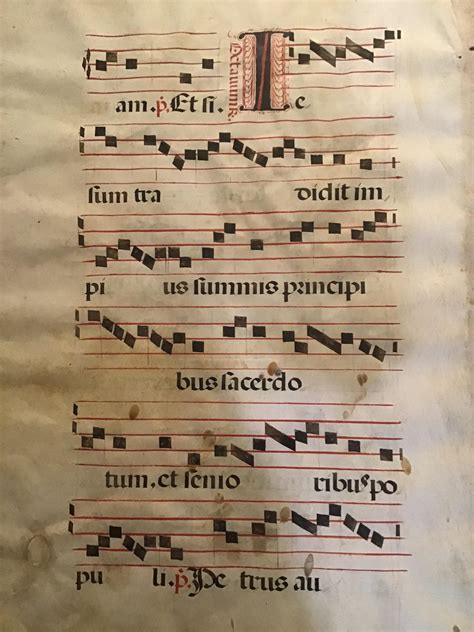 am. ℣. Et si. Octauum ℟. I e
sum tra didit im
pi us summis principi
bus sacerdo
tum. et senio ribus po
pu li. ℣. Pe trus au